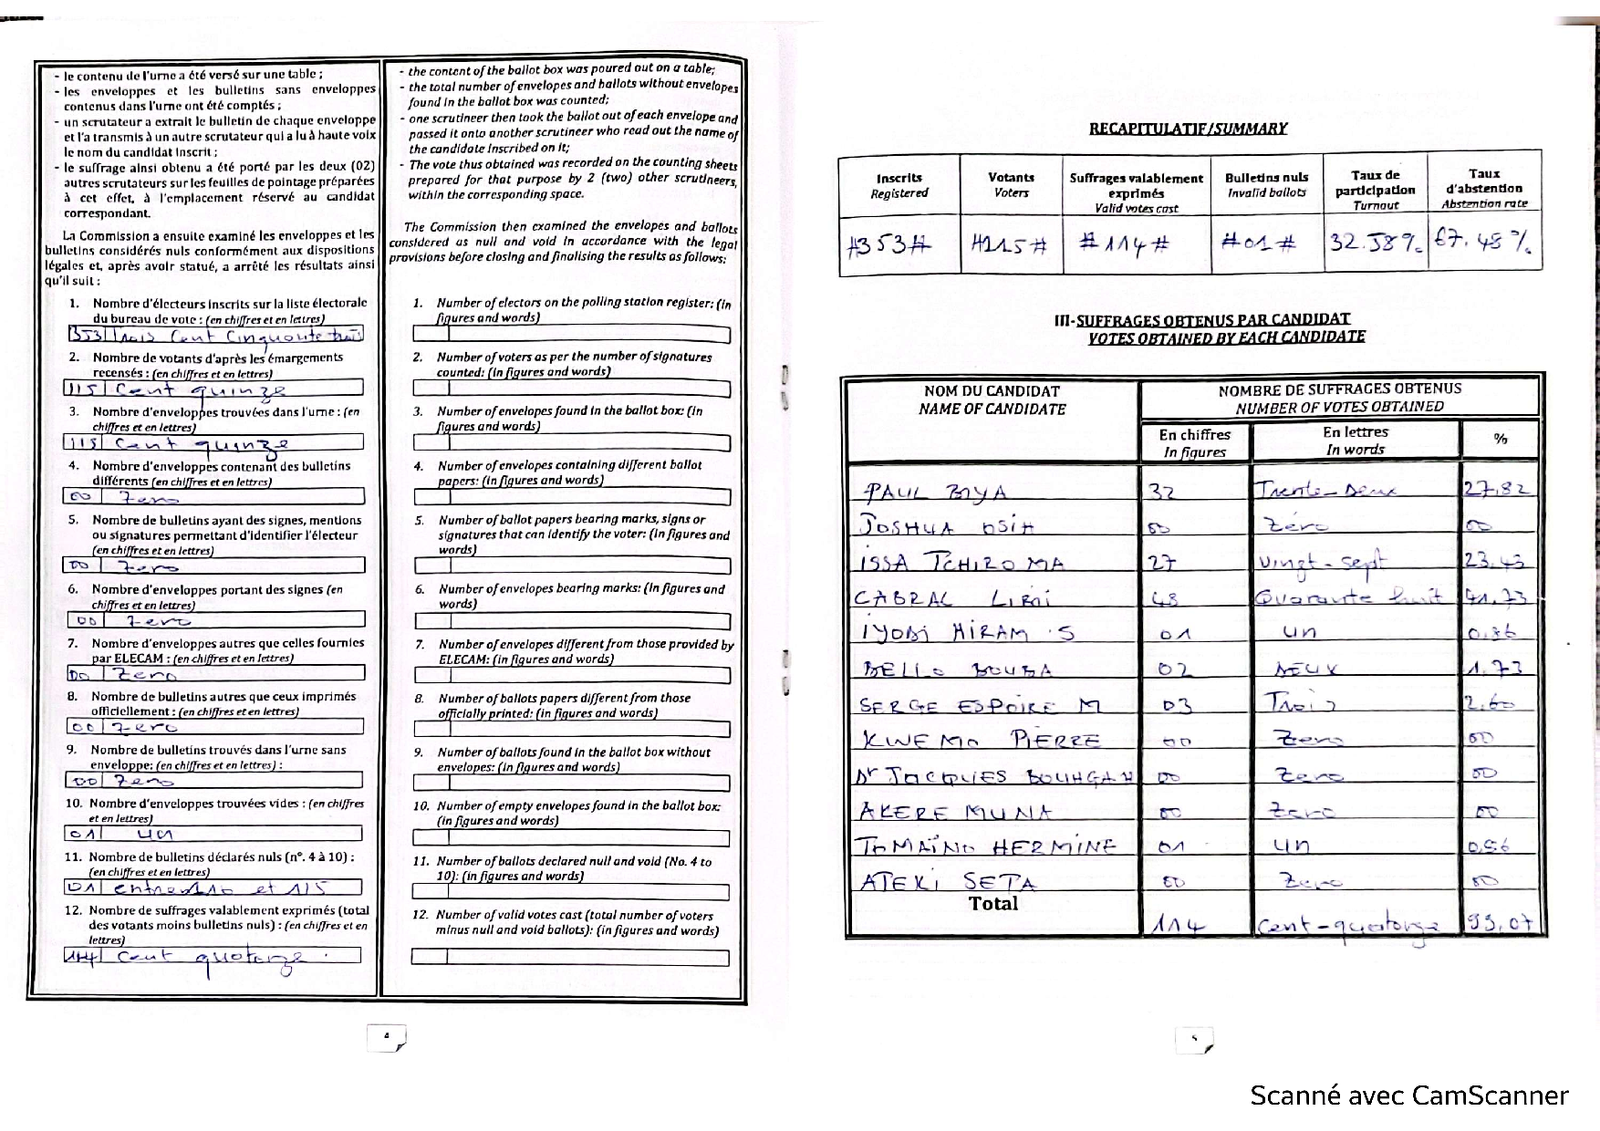 - le contenu de l'urne a été versé sur une table ;
- les enveloppes et les bulletins sans enveloppes
contenus dans l'urne ont été comptés ;
- un scrutateur a extrait le bulletin de chaque enveloppe
et l'a transmis à un autre scrutateur qui a lu à haute voix
le nom du candidat inscrit ;
- le suffrage ainsi obtenu a été porté par les deux (02)
autres scrutateurs sur les feuilles de pointage préparées
à cet effet, à l'emplacement réservé au candidat
correspondant.
La Commission a ensuite examiné les enveloppes et les
bulletins considérés nuls conformément aux dispositions
légales et, après avoir statué, a arrêté les résultats ainsi
qu'il suit :
1. Nombre d'électeurs inscrits sur la liste électorale
du bureau de vote : (en chiffres et en lettres)
353 Trois Cent Cinquante trois
2. Nombre de votants d'après les émargements
recensés : (en chiffres et en lettres)
115 Cent quinze
3. Nombre d'enveloppes trouvées dans l'urne : (en
chiffres et en lettres)
115 Cent quinze
4. Nombre d'enveloppes contenant des bulletins
différents (en chiffres et en lettres)
00 Zero
5. Nombre de bulletins ayant des signes, mentions
ou signatures permettant d'identifier l'électeur
(en chiffres et en lettres)
00 Zero
6. Nombre d'enveloppes portant des signes (en
chiffres et en lettres)
00 Zero
7. Nombre d'enveloppes autres que celles fournies
par ELECAM : (en chiffres et en lettres)
00 Zero
8. Nombre de bulletins autres que ceux imprimés
officiellement : (en chiffres et en lettres)
00 Zero
9. Nombre de bulletins trouvés dans l'urne sans
enveloppe: (en chiffres et en lettres) :
00 Zero
10. Nombre d'enveloppes trouvées vides : (en chiffres
et en lettres)
01 un
11. Nombre de bulletins déclarés nuls (n°. 4 à 10) :
(en chiffres et en lettres)
01 et 115
12. Nombre de suffrages valablement exprimés (total
des votants moins bulletins nuls) : (en chiffres et en
lettres)
114 Cent quatorze
- the content of the ballot box was poured out on a table;
- the total number of envelopes and ballots without envelopes
found in the ballot box was counted;
- one scrutineer then took the ballot out of each envelope and
passed it onto another scrutineer who read out the name of
the candidate inscribed on it;
- The vote thus obtained was recorded on the counting sheets
prepared for that purpose by 2 (two) other scrutineers,
within the corresponding space.
The Commission then examined the envelopes and ballots
considered as null and void in accordance with the legal
provisions before closing and finalising the results as follows:
1. Number of electors on the polling station register: (in
figures and words)
2. Number of voters as per the number of signatures
counted: (in figures and words)
3. Number of envelopes found in the ballot box: (in
figures and words)
4. Number of envelopes containing different ballot
papers: (in figures and words)
5. Number of ballot papers bearing marks, signs or
signatures that can identify the voter: (in figures and
words)
6. Number of envelopes bearing marks: (in figures and
words)
7. Number of envelopes different from those provided by
ELECAM: (in figures and words)
8. Number of ballots papers different from those
officially printed: (in figures and words)
9. Number of ballots found in the ballot box without
envelopes: (in figures and words)
10. Number of empty envelopes found in the ballot box:
(in figures and words)
11. Number of ballots declared null and void (No. 4 to
10): (in figures and words)
12. Number of valid votes cast (total number of voters
minus null and void ballots): (in figures and words)
4
RECAPITULATIF/SUMMARY
Inscrits Registered | Votants Voters | Suffrages valablement exprimés Valid votes cast | Bulletins nuls Invalid ballots | Taux de participation Turnout | Taux d'abstention Abstention rate
#353# | #115# | #114# | #01# | 32.58% | 67.48%
III-SUFFRAGES OBTENUS PAR CANDIDAT
VOTES OBTAINED BY EACH CANDIDATE
NOM DU CANDIDAT NAME OF CANDIDATE | NOMBRE DE SUFFRAGES OBTENUS NUMBER OF VOTES OBTAINED
En chiffres In figures | En lettres In words | %
PAUL BIYA | 32 | Trente-Deux | 27,82
JOSHUA OSIH | 00 | Zéro | 00
ISSA TCHIROMA | 27 | Vingt-sept | 23.43
CABRAL LIBII | 48 | Quarante huit | 41.73
IYODI HIRAM S | 01 | un | 0.86
BELLO BOUBA | 02 | DEUX | 1.73
SERGE ESPOIRE M | 03 | Trois | 2.60
KWEMO PIERRE | 00 | Zero | 00
Dr JACQUES BOUHGAH | 00 | Zero | 00
AKERE MUNA | 00 | Zero | 00
TOMAÏNO HERMINE | 01 | un | 0,86
ATEKI SETA | 00 | Zero | 00
Total | 114 | Cent-quatorze | 99,07
5
Scanné avec CamScanner